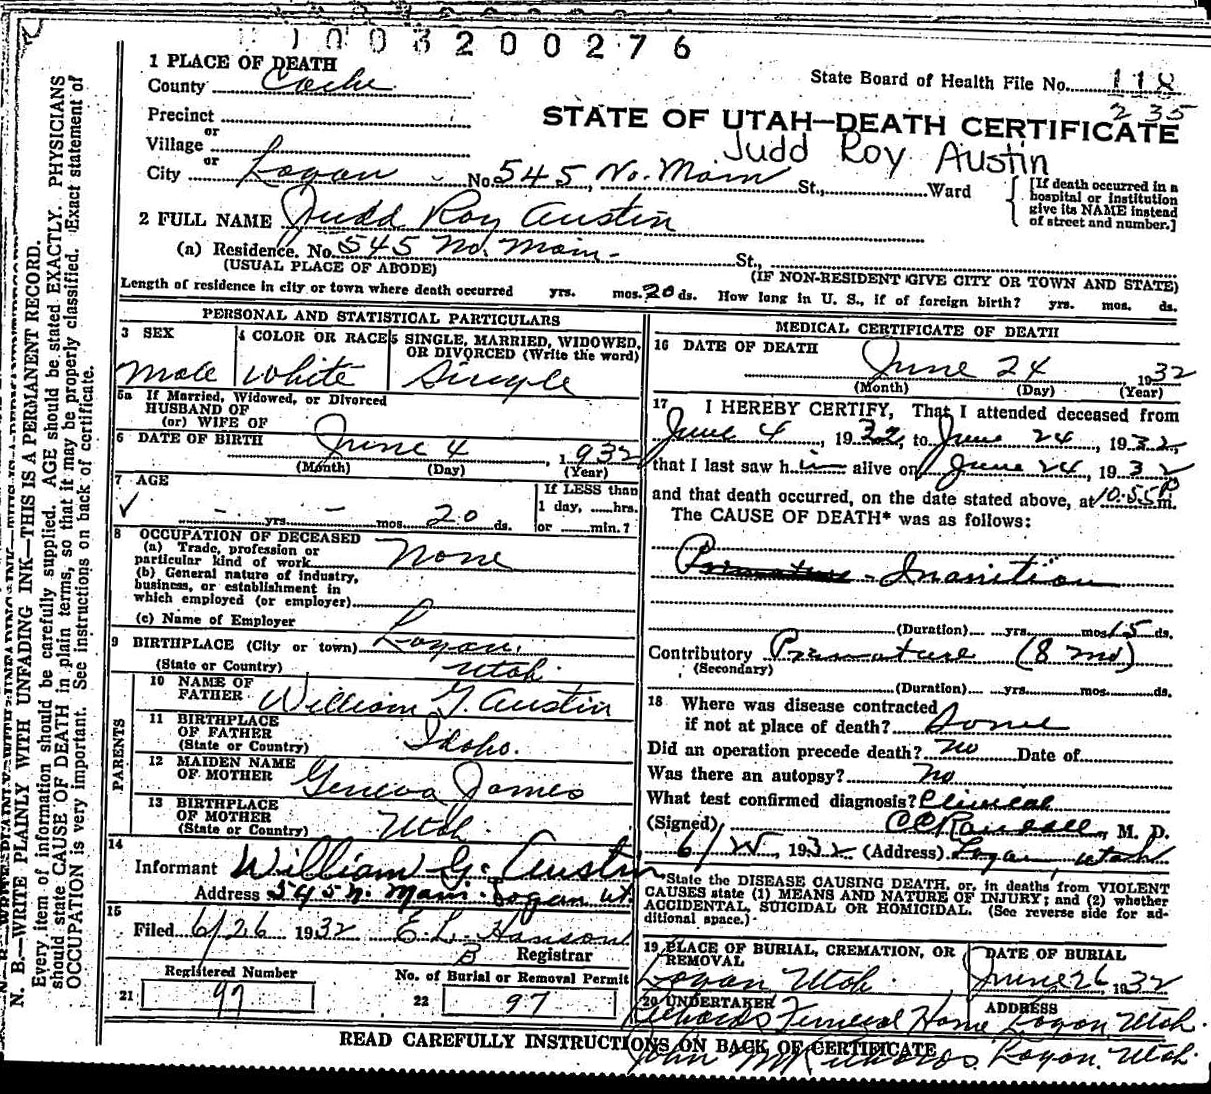 1003200276
1 PLACE OF DEATH
County Cache
State Board of Health File No. 118
235
Precinct
or
Village
or
STATE OF UTAH—DEATH CERTIFICATE
Judd Roy Austin
City Logan No. 545 No. Main St., Ward
[If death occurred in a hospital or institution give its NAME instead of street and number.]
2 FULL NAME Judd Roy Austin
(a) Residence. No. 545 No. Main St.,
(USUAL PLACE OF ABODE) (IF NON-RESIDENT GIVE CITY OR TOWN AND STATE)
Length of residence in city or town where death occurred yrs. mos. 20 ds. How long in U. S., if of foreign birth? yrs. mos. ds.
PERSONAL AND STATISTICAL PARTICULARS
3 SEX
Male
4 COLOR OR RACE
White
5 SINGLE, MARRIED, WIDOWED,
OR DIVORCED (Write the word)
Single
5a If Married, Widowed, or Divorced
HUSBAND OF
(or) WIFE OF
6 DATE OF BIRTH June 4, 1932
(Month) (Day) (Year)
7 AGE
✓ - yrs. - mos. 20 ds.
If LESS than
1 day, hrs.
or min.?
8 OCCUPATION OF DECEASED
(a) Trade, profession or
particular kind of work None
(b) General nature of industry,
business, or establishment in
which employed (or employer)
(c) Name of Employer
9 BIRTHPLACE (City or town) Logan,
(State or Country) Utah
PARENTS
10 NAME OF
FATHER William G. Austin
11 BIRTHPLACE
OF FATHER
(State or Country) Idaho.
12 MAIDEN NAME
OF MOTHER Geneva James
13 BIRTHPLACE
OF MOTHER
(State or Country) Utah.
14
Informant William G. Austin
Address 545 N. Main. Logan Ut.
15
Filed 6/26 1932 E. L. Hanson
Registrar
Registered Number
21 97
No. of Burial or Removal Permit
22 97
MEDICAL CERTIFICATE OF DEATH
16 DATE OF DEATH
June 24, 1932
(Month) (Day) (Year)
17 I HEREBY CERTIFY, That I attended deceased from
June 4, 1932, to June 24, 1932,
that I last saw him alive on June 24, 1932
and that death occurred, on the date stated above, at 10.55 P m.
The CAUSE OF DEATH* was as follows:
Premature - Inanition
(Duration) yrs. mos. 15 ds.
Contributory Premature (8 mo)
(Secondary)
(Duration) yrs. mos. ds.
18 Where was disease contracted
if not at place of death?
Did an operation precede death? no Date of
Was there an autopsy? no
What test confirmed diagnosis? Clinical
(Signed) CC Randall, M. D.
6/25, 1932 (Address) Logan Utah
*State the DISEASE CAUSING DEATH, or, in deaths from VIOLENT
CAUSES state (1) MEANS AND NATURE OF INJURY; and (2) whether
ACCIDENTAL, SUICIDAL OR HOMICIDAL. (See reverse side for ad-
ditional space.)
19 PLACE OF BURIAL, CREMATION, OR
REMOVAL
Logan Utah
DATE OF BURIAL
June 26, 1932
20 UNDERTAKER ADDRESS
Richards Funeral Home Logan, Utah.
John M Richards. Logan, Utah.
READ CAREFULLY INSTRUCTIONS ON BACK OF CERTIFICATE
N. B.—WRITE PLAINLY WITH UNFADING INK—THIS IS A PERMANENT RECORD.
Every item of information should be carefully supplied. AGE should be stated EXACTLY. PHYSICIANS
should state CAUSE OF DEATH in plain terms, so that it may be properly classified. Exact statement of
OCCUPATION is very important. See instructions on back of certificate.